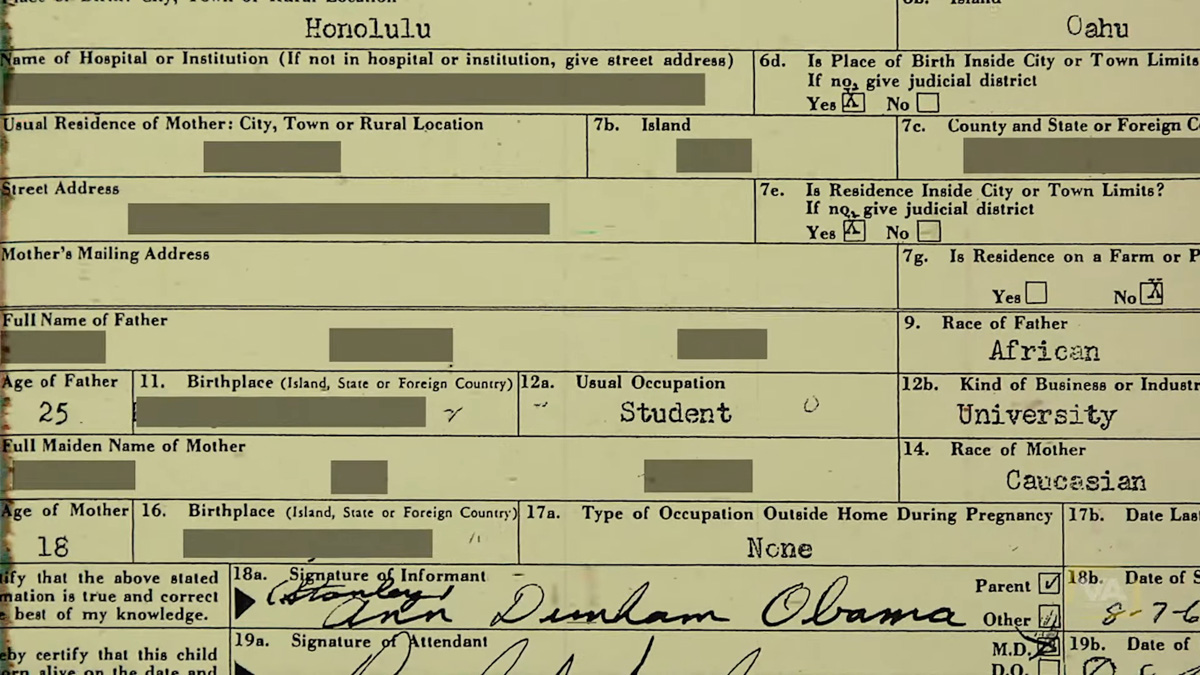 Honolulu
Oahu
Name of Hospital or Institution (If not in hospital or institution, give street address)
6d. Is Place of Birth Inside City or Town Limits
If no, give judicial district
Yes X No
Usual Residence of Mother: City, Town or Rural Location
7b. Island
7c. County and State or Foreign C
Street Address
7e. Is Residence Inside City or Town Limits?
If no, give judicial district
Yes X No
Mother's Mailing Address
7g. Is Residence on a Farm or P
Yes No X
Full Name of Father
9. Race of Father
African
Age of Father
25
11. Birthplace (Island, State or Foreign Country)
12a. Usual Occupation
Student
12b. Kind of Business or Industr
University
Full Maiden Name of Mother
14. Race of Mother
Caucasian
Age of Mother
18
16. Birthplace (Island, State or Foreign Country)
17a. Type of Occupation Outside Home During Pregnancy
None
17b. Date Las
tify that the above stated
mation is true and correct
e best of my knowledge.
18a. Signature of Informant
(Stanley)
Ann Dunham Obama
Parent ✓
Other
18b. Date of S
8-7-6
eby certify that this child
orn alive on the date and
19a. Signature of Attendant
M.D. X
D.O.
19b. Date of
VA